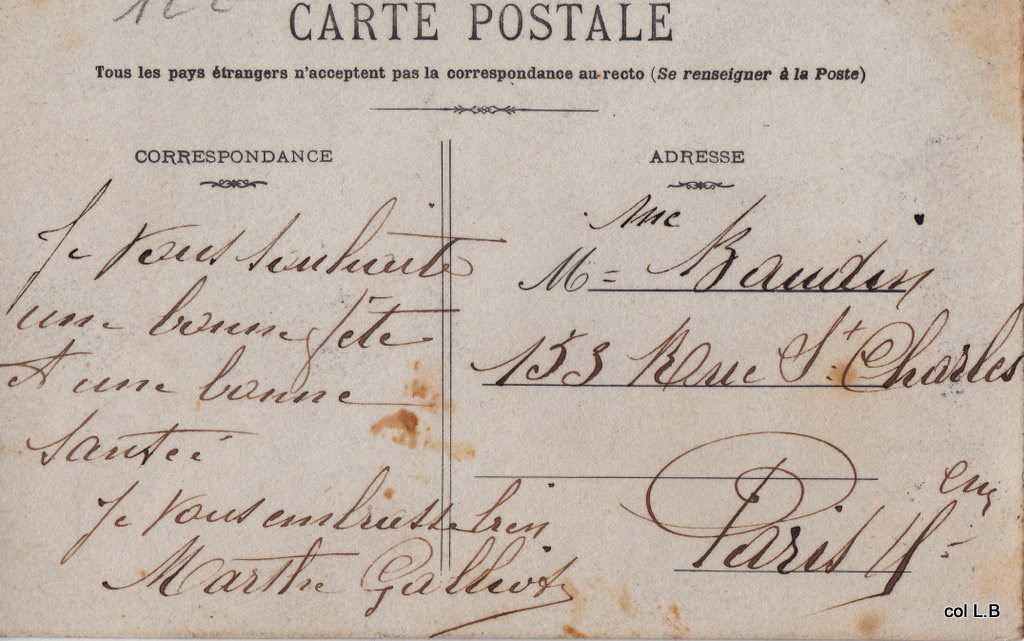 122
CARTE POSTALE
Tous les pays étrangers n'acceptent pas la correspondance au recto (Se renseigner à la Poste)
CORRESPONDANCE
Je vous souhaite
une bonne fête
et une bonne
santée
Je vous embrasse bien
Marthe Galliot
ADRESSE
Mme
M= Baudin
153 Rue St Charles
Paris
col L.B